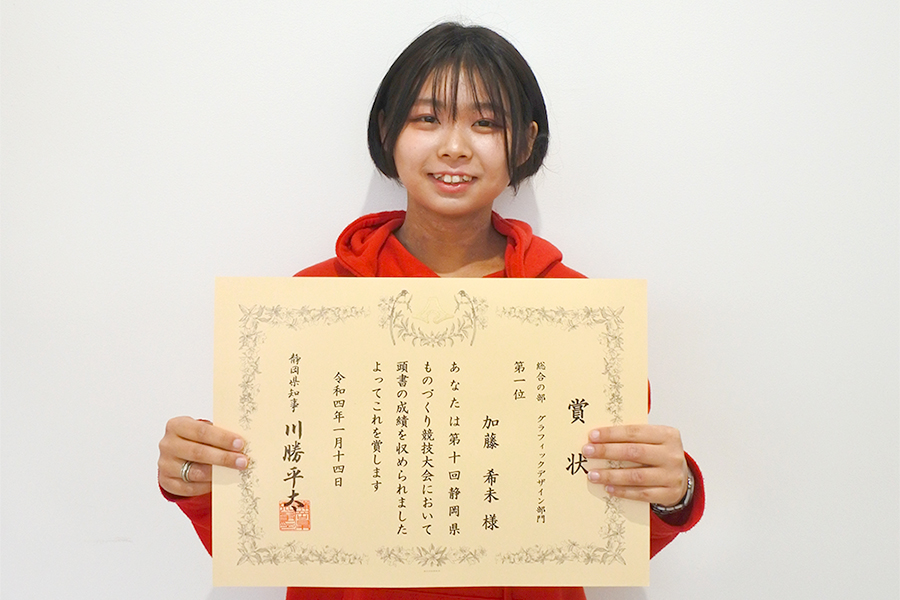 賞状
総合の部 グラフィックデザイン部門
第一位
加藤 希未 様
あなたは第十回静岡県
ものづくり競技大会において
頭書の成績を収められました
よってこれを賞します
令和四年一月十四日
静岡県知事 川勝平太